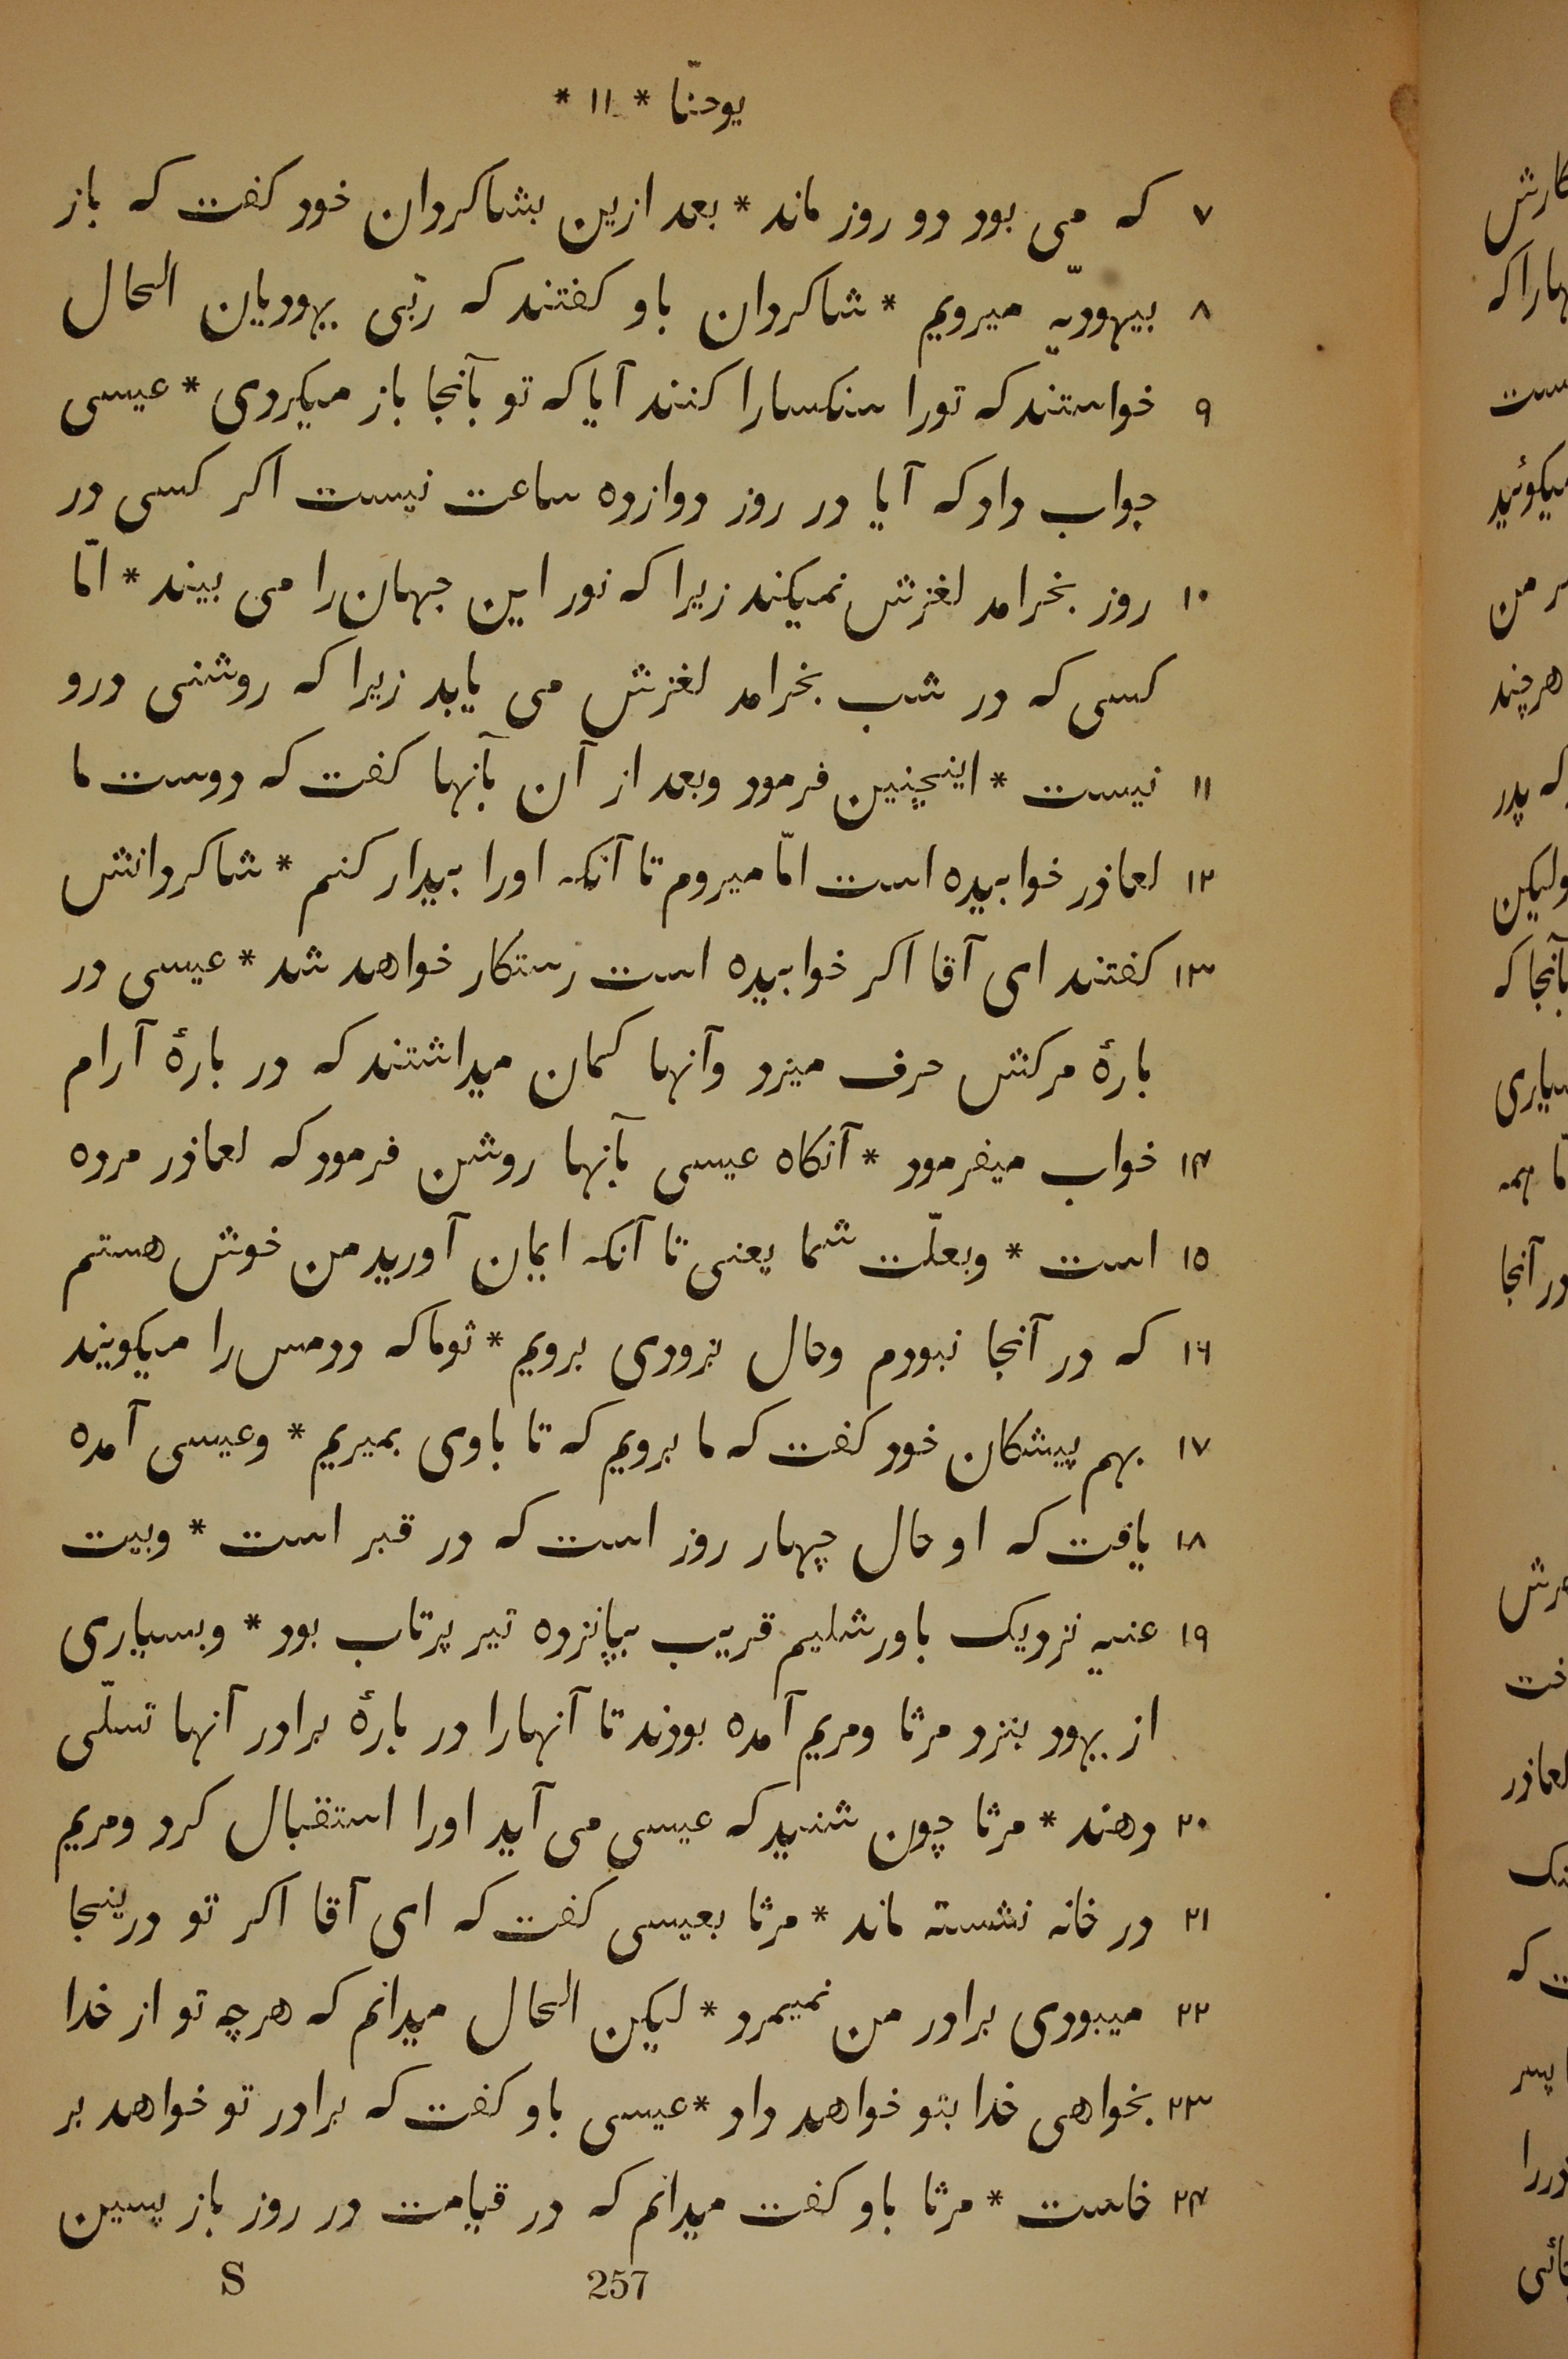 یوحنّا * ۱۱ *
۷ که می بود دو روز ماند * بعد ازین بشاکردان خود کفت که باز
۸ بیهودیّه میرویم * شاکردان باو کفتند که ربّی یهودیان الحال
۹ خواستند که تورا سنکسارا کنند آیا که تو بآنجا باز میکردی * عیسی
جواب داد که آیا در روز دوازده ساعت نیست اکر کسی در
۱۰ روز بخرامد لغزش نمیکند زیرا که نور این جهان را می بیند * امّا
کسی که در شب بخرامد لغزش می یابد زیرا که روشنی درو
۱۱ نیست * اینچنین فرمود وبعد از آن بآنها کفت که دوست ما
۱۲ لعاذر خوابیده است امّا میروم تا آنکه اورا بیدار کنم * شاکردانش
۱۳ کفتند ای آقا اکر خوابیده است رستکار خواهد شد * عیسی در
بارهٔ مرکش حرف میزد وآنها کمان میداشتند که در بارهٔ آرام
۱۴ خواب میفرمود * آنکاه عیسی بآنها روشن فرمود که لعاذر مرده
۱۵ است * وبعلّت شما یعنی تا آنکه ایمان آورید من خوش هستم
۱۶ که در آنجا نبودم وحال بزودی برویم * ثوما که ددمس را میکویند
۱۷ بهم پیشکان خود کفت که ما برویم که تا باوی بمیریم * وعیسی آمده
۱۸ یافت که او حال چهار روز است که در قبر است * وبیت
۱۹ عنیه نزدیک باورشلیم قریب بپانزده تیر پرتاب بود * وبسیاری
از یهود بنزد مرثا ومریم آمده بودند تا آنهارا در بارهٔ برادر آنها تسلّی
۲۰ دهند * مرثا چون شنید که عیسی می آید اورا استقبال کرد ومریم
۲۱ در خانه نشسته ماند * مرثا بعیسی کفت که ای آقا اکر تو درینجا
۲۲ میبودی برادر من نمیمرد * لیکن الحال میدانم که هرچه تو از خدا
۲۳ بخواهی خدا بتو خواهد داد * عیسی باو کفت که برادر تو خواهد بر
۲۴ خاست * مرثا باو کفت میدانم که در قیامت در روز باز پسین
257 S